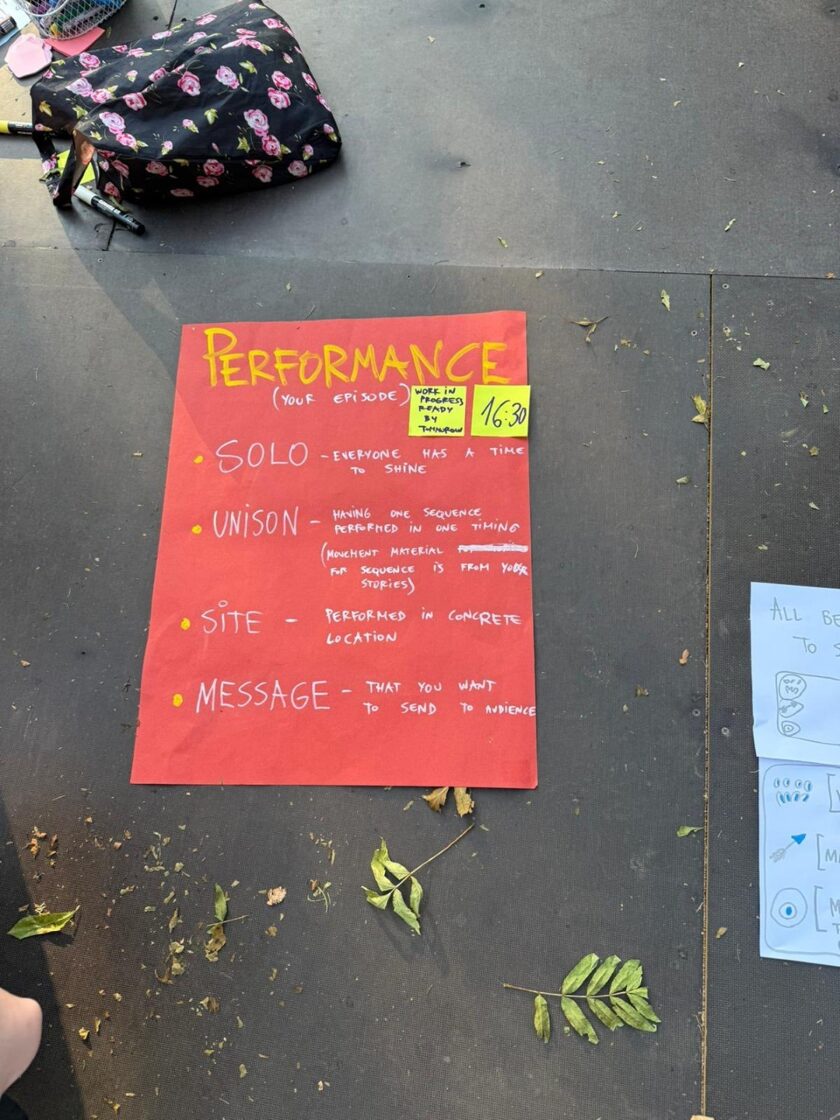 PERFORMANCE
(YOUR EPISODE)
WORK IN
PROGRESS
READY
BY
TOMORROW
16:30
SOLO - EVERYONE HAS A TIME
TO SHINE
UNISON - HAVING ONE SEQUENCE
PERFORMED IN ONE TIMING
(MOVEMENT MATERIAL
FOR SEQUENCE IS FROM YOUR
STORIES)
SITE - PERFORMED IN CONCRETE
LOCATION
MESSAGE - THAT YOU WANT
TO SEND TO AUDIENCE
ALL BE
TO S